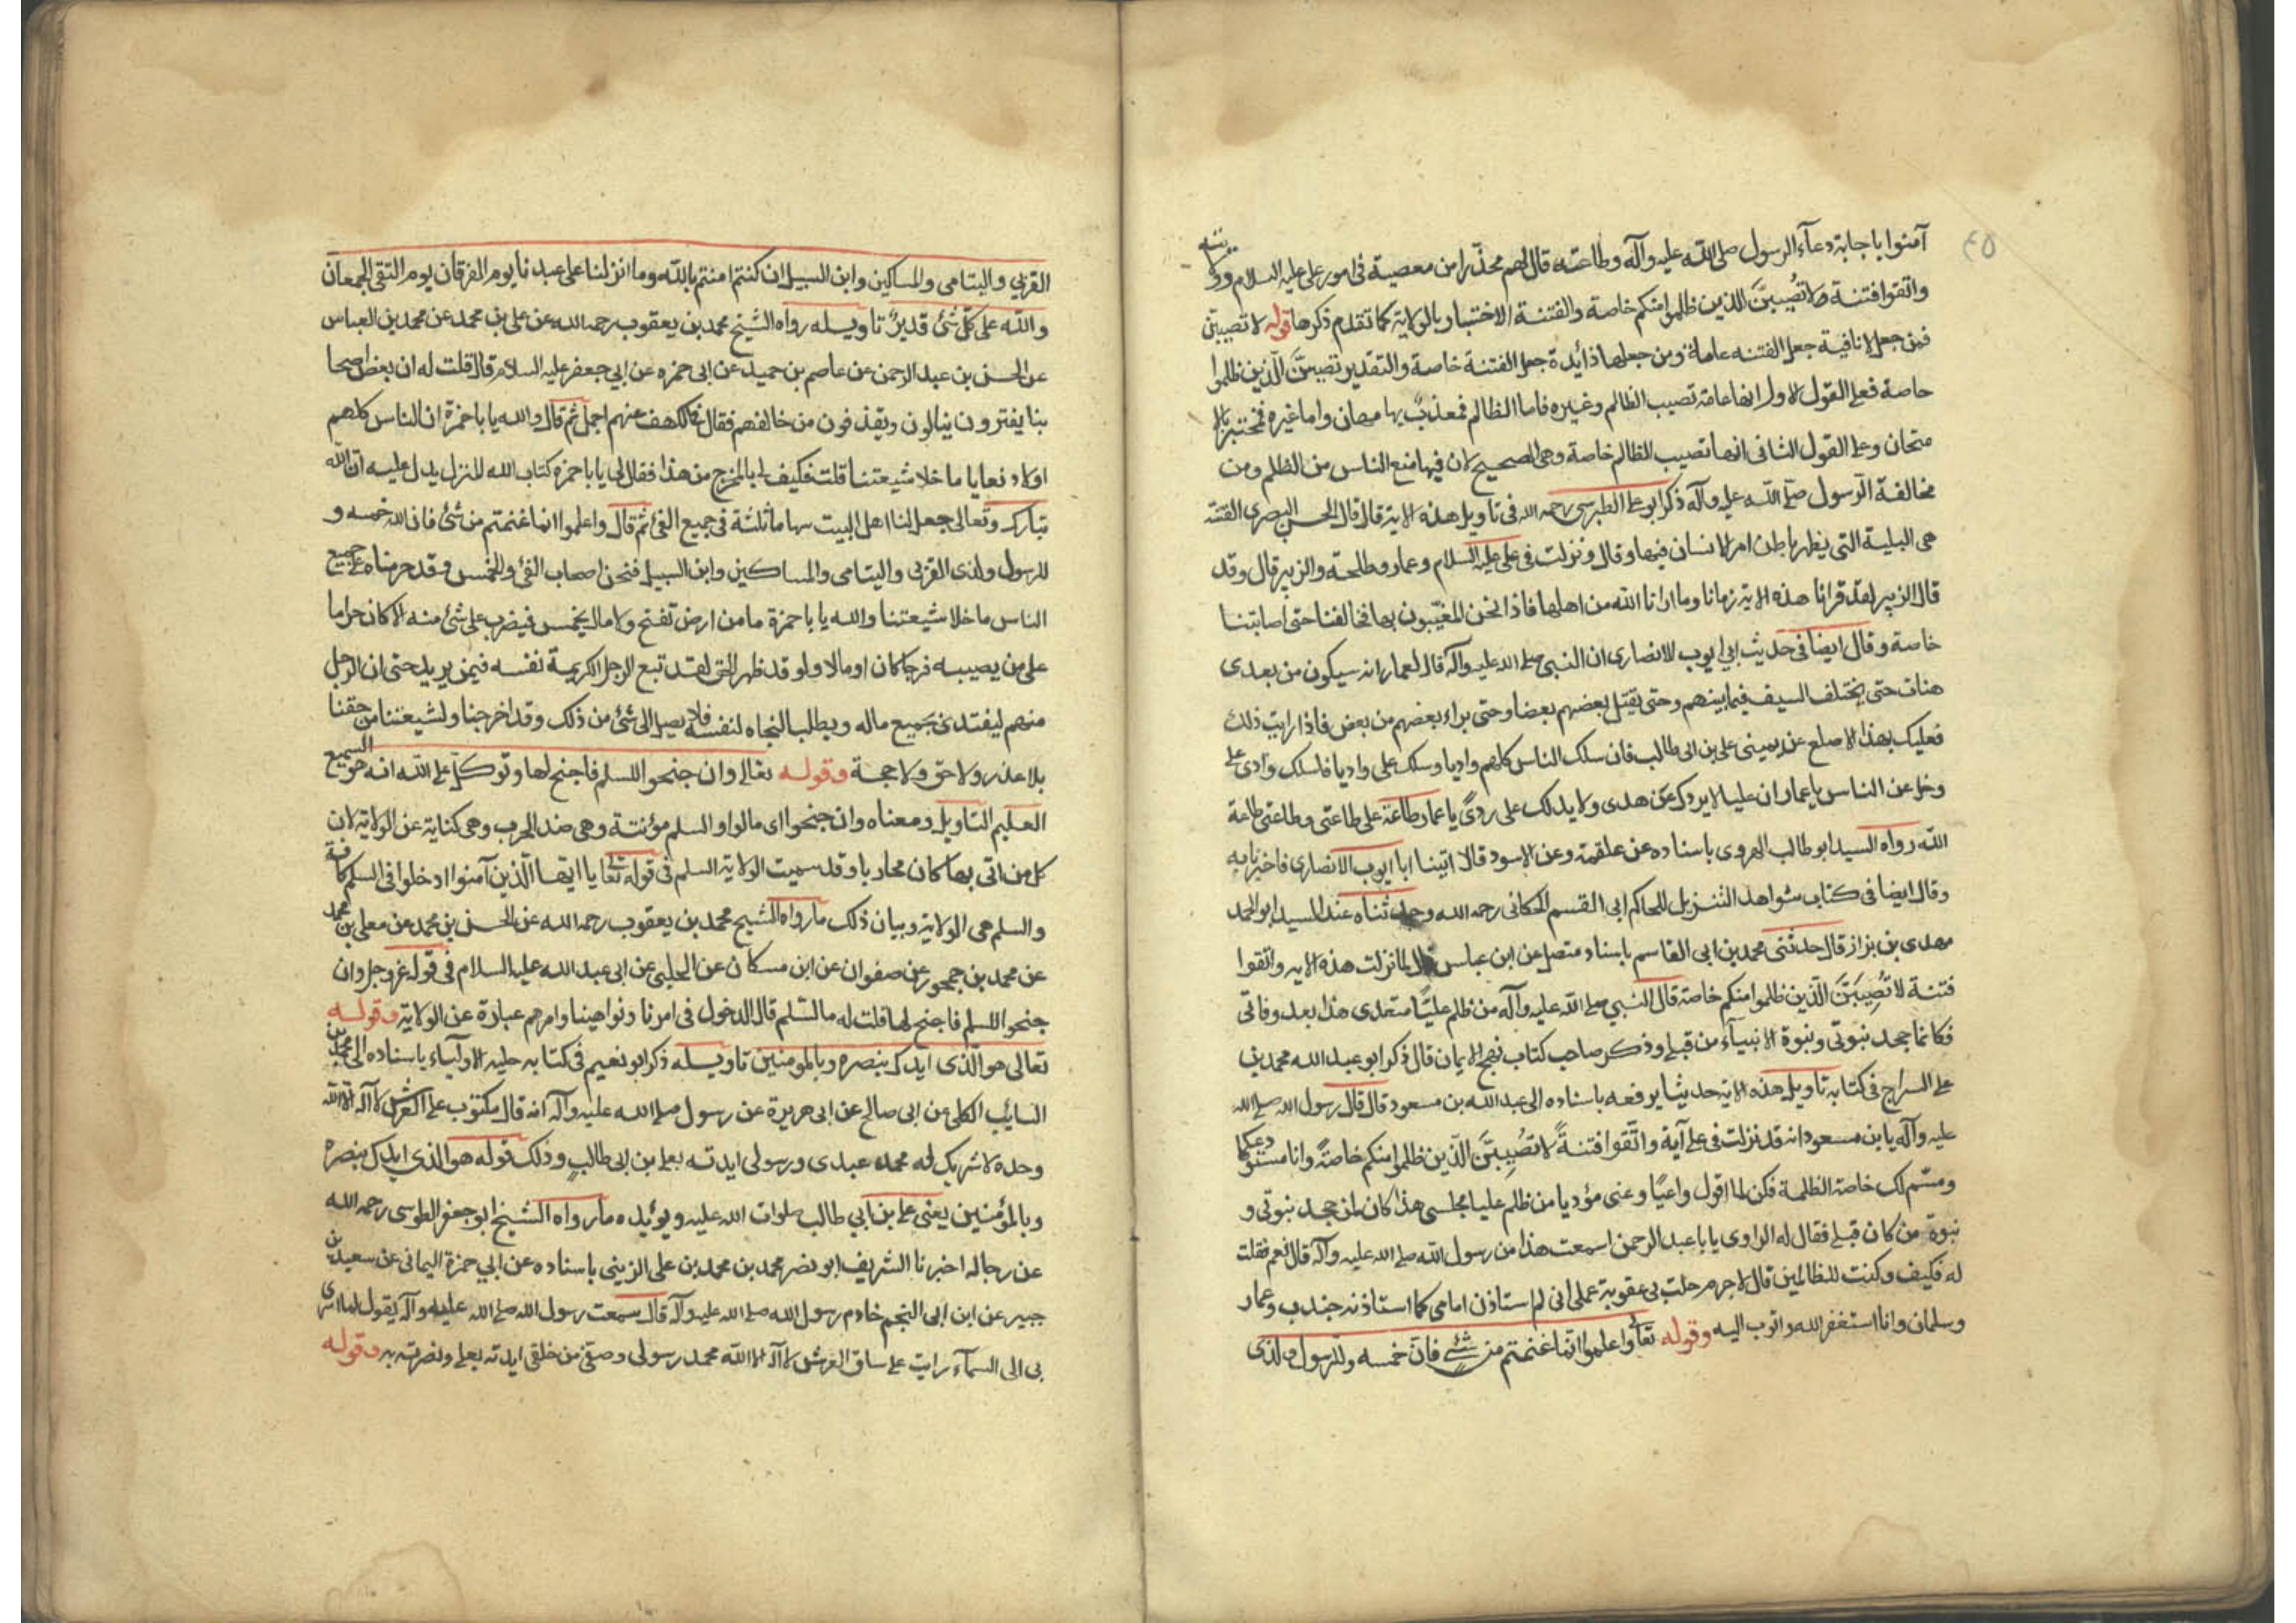 ٤٥
آمنوا باجابة دعآء الرسول صلى الله عليه وآله وطاعته قال لهم محذرا من معصية فى امور على عليه السلام وولايته
واتقوا فتنة لا تُصيبنَّ الذين ظلموا منكم خاصة والفتنة الاختبار بالولاية كما تقدم ذكرها قوله لا تصيبن
فمن جعل لا نافية جعل الفتنه عامة ومن جعلها زائدة جعل الفتنة خاصة والتقدير تصيبنَّ الَّذين ظلموا
خاصة فعلى القول الاول انها عامة تصيب الظالم وغيره فاما الظالم فمعذبٌ بها مهان واما غيره فمختبر بالا
متحان وعلى القول الثانى انها تصيب الظالم خاصة وهى الصحيح لان فيها منع الناس من الظلم ومن
مخالفة الرسول صلى الله عليه وآله ذكر ابو على الطبرسى رحمه الله فى تاويل هذه الاية قال قال الحسن البصرى الفتنة
هى البلية التى يظهر باطن امر الانسان فيها وقال ونزلت فى على عليه السلام وعمار وطلحة والزبير قال وقد
قال الزبير لقد قرانا هذه الاية زمانا وما ارانا الله من اهلها فاذا نحن المعنيّون بها فخالفنا حتى اصابتنا
خاصة وقال ايضا فى حديث ابي ايوب الانصارى ان النبى صلى الله عليه وآله قال لعمار انه سيكون من بعدى
هنات حتى يختلف السيف فيما بينهم وحتى يقتل بعضهم بعضا وحتى براء بعضهم من بعض فاذا رايت ذلك
فعليك بهذا الاصلع عن يمينى على بن ابى طالب فان سلك الناس كلهم واديا وسلك على واديا فاسلك وادى على
وخل عن الناس يا عمار ان عليا لا يردك عن هدى ولا يدلك على ردىً يا عمار طاعة على طاعتى وطاعتى طاعة
الله رواه السيد ابو طالب الهروى باسناده عن علقمة وعن الاسود قالا اتينا ابا ايوب الانصارى فاخبرنا به
وقال ايضا فى كتاب شواهد التنزيل للحاكم ابى القسم الحكانى رحمه الله وحدثناه عند السيد ابو الحمد
مهدى بن نزار قال حدثنى محمد بن ابى القاسم باسناد متصل عن ابن عباس قال لما نزلت هذه الاية واتقوا
فتنة لا تُصِيبَنَّ الَّذين ظلموا منكم خاصة قال النبي صلى الله عليه وآله من ظلم عليًّا مقعدى هذا بعد وفاتى
فكانما جحد نبوتى ونبوة الانبيآء من قبلى وذكر صاحب كتاب نهج الايمان قال ذكر ابو عبد الله محمد بن
على السراج فى كتابه تاويل هذه الاية حديثا يرفعه باسناده الى عبد الله بن مسعود قال قال رسول الله صلى الله
عليه وآله يا بن مسعود انه قد نزلت فى على آية واتَّقوا فتنةً لا تصُيبنَّ الَّذين ظلموا منكم خاصةً وانا مستودعكها
ومسّم لك خاصة الظلمة فكن لما اقول واعيًا وعنى مؤديا من ظلم عليا مجلسى هذا كان كمن جحد نبوتى و
نبوة من كان قبلى فقال له الراوى يا با عبد الرحمن اسمعت هذا من رسول الله صلى الله عليه وآله قال نعم فقلت
له فكيف وكنت للظالمين قال لا جرم حلت بى عقوبة عملى انى لم استاذن امامى كما استاذنه جندب وعمار
وسلمان وانا استغفر الله واتوب اليه وقوله تعالى واعلموا انّما غنمتم من شئٍ فان خمسه وللرسول ولذى
القربي واليتامى والمساكين وابن السبيل ان كنتم امنتم بالله وما انزلنا على عبدنا يوم الفرقان يوم التقى الجمعان
والله على كل شئ قديرٌ تاويله رواه الشيخ محمد بن يعقوب رحمه الله عن على بن محمد عن محمد بن العباس
عن الحسن بن عبد الرحمن عن عاصم بن حميد عن ابى حمزه عن ابى جعفر عليه السلام قال قلت له ان بعض اصحا
بنا يفترون ينالون ويقذفون من خالفهم فقال الكف عنهم اجمل ثم قال والله يا با حمزة ان الناس كلهم
اولاد بغايا ما خلا شيعتنا قلت فكيف لى بالمخرج من هذا فقال لى يا با حمزه كتاب الله المنزل يدل عليه ان الله
تبارك وتعالى جعل لنا اهل البيت سهاما ثلثة فى جميع الفئ ثم قال واعلموا انما غنمتم من شئ فان لله خمسه و
للرسول ولذى القربى واليتامى والمساكين وابن السبيل فنحن اصحاب الفئ والخمس وقد حرمناه على جميع
الناس ما خلا شيعتنا والله يا با حمزة ما من ارض تفتح ولا مال يخمس فيضرب على شئ منه الا كان حراما
على من يصيبه فرجا كان او مالا ولو قد ظهر الحق لقد تبع الرجل الكريمة نفسه فيمن يريد حتى ان الرجل
منهم ليفتدى بجميع ماله ويطلب النجاه لنفسه فلا يصل الى شئ من ذلك وقد اخرجنا ولشيعتنا من حقنا
بلا عذر ولا حق ولا حجة وقوله تعالى وان جنحوا للسلم فاجنح لها وتوكّل على الله انه هو السميع
العليم التاويل ومعناه وان جنحوا اى مالوا والسلم مؤنثة وهى ضد الحرب وهى كناية عن الولاية لان
كل من اتى بها كان محاربا وقد سميت الولاية السلم فى قوله تعالى يا ايها الّذين آمنوا ادخلوا فى السلم كافة
والسلم هى الولاية وبيان ذلك ما رواه الشيخ محمد بن يعقوب رحمه الله عن الحسن بن محمد عن معلى بن محمد
عن محمد بن جمهور عن صفوان عن ابن مسكان عن الحلبى عن ابى عبد الله عليه السلام فى قوله عز وجل وان
جنحوا للسلم فاجنح لها قلت له ما السّلم قال الدخول فى امرنا ونواهينا وامرهم عبارة عن الولاية وقوله
تعالى هو الَّذى ايدك بنصره وبالمومنين تاويله ذكر ابو نعيم فى كتابه حلية الاولياء باسناده الى محمد بن
السايب الكلبى عن ابى صالح عن ابى هريرة عن رسول صلى الله عليه وآله انه قال مكتوب على العرش لا آله الا الله
وحده لا شريك له محمد عبدى ورسولى ايدته بعلى بن ابى طالب وذلك قوله هو الذى ايدك بنصره
وبالمؤمنين يعنى على بن ابي طالب صلوات الله عليه ويؤيده ما رواه الشيخ ابو جعفر الطوسى رحمه الله
عن رجاله اخبرنا الشريف ابو نصر محمد بن محمد بن على الزينبى باسناده عن ابي حمزة اليمانى عن سعيد بن
جبير عن ابن ابى النجم خادم رسول الله صلى الله عليه وآله قال سمعت رسول الله صلى الله عليه وآله يقول لما اسرى
بى الى السمآء رايت على ساق العرش لا آله الا الله محمد رسولى وصفيّ من خلقى ايدته بعلى ونصرته به وقوله